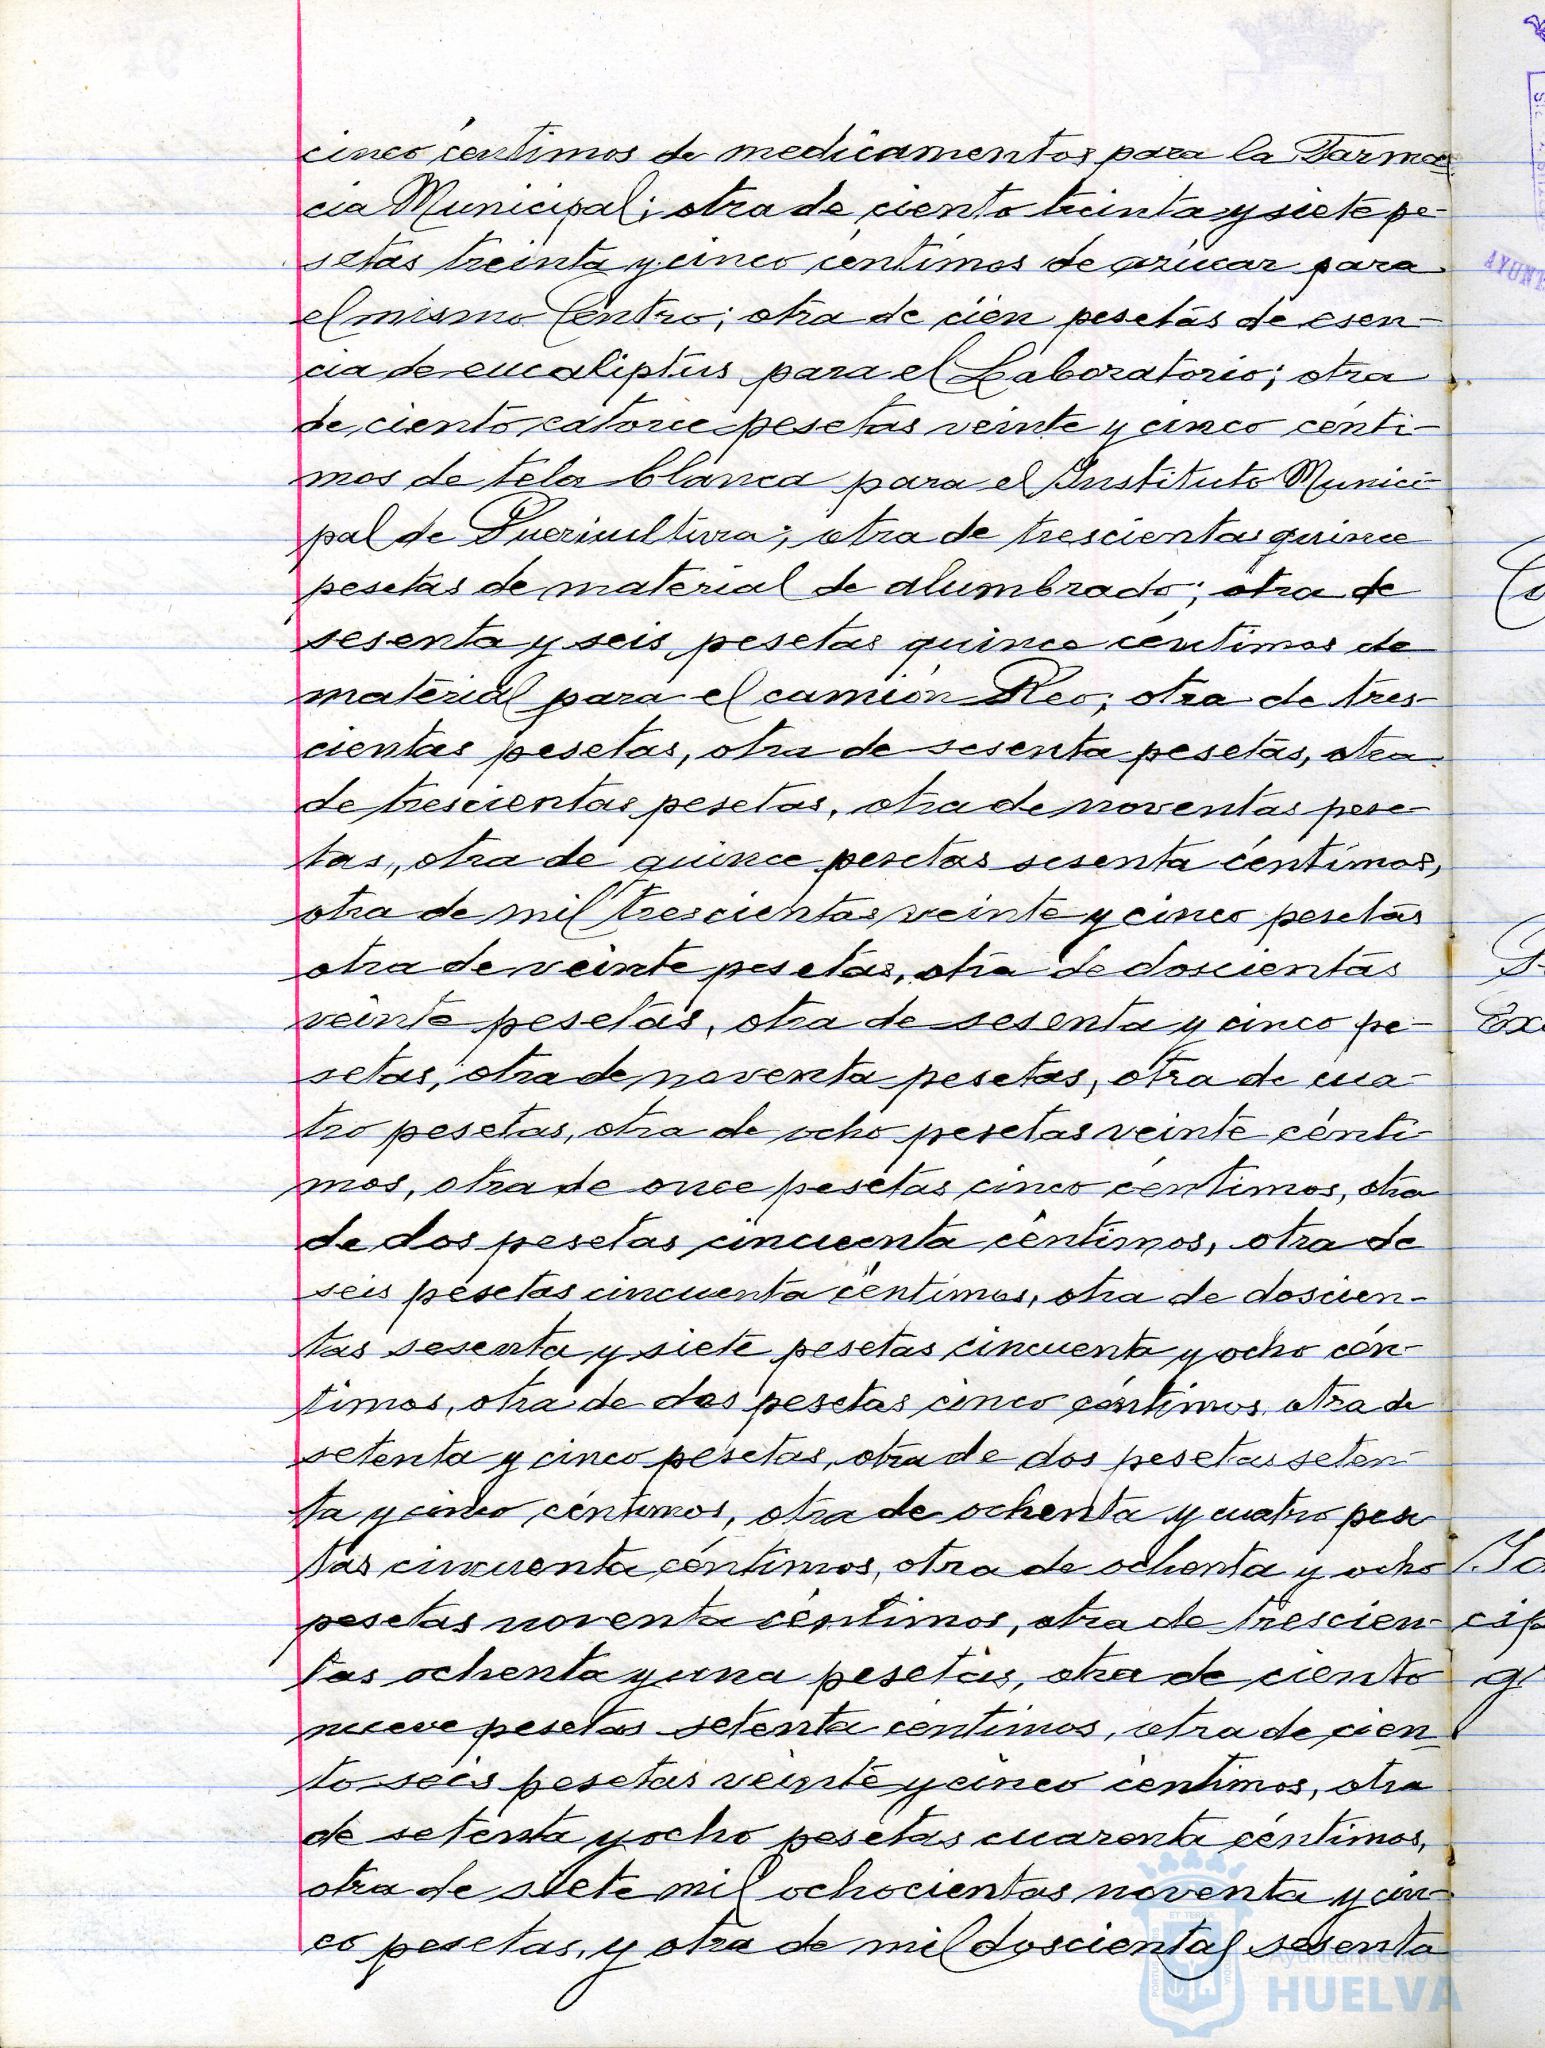 cinco céntimos de medicamentos para la Farma-
cia Municipal; otra de ciento treinta y siete pe-
setas treinta y cinco céntimos de azúcar para
el mismo Centro; otra de cien pesetas de esen-
cia de eucaliptus para el Laboratorio; otra
de ciento catorce pesetas veinte y cinco cénti-
mos de tela blanca para el Instituto Munici-
pal de Puericultura; otra de trescientas quince
pesetas de material de alumbrado; otra de
sesenta y seis pesetas quince céntimos de
material para el camión Reo; otra de tres-
cientas pesetas, otra de sesenta pesetas, otra
de trescientas pesetas, otra de noventas pese-
tas, otra de quince pesetas sesenta céntimos,
otra de mil trescientas veinte y cinco pesetas
otra de veinte pesetas, otra de doscientas
veinte pesetas, otra de sesenta y cinco pe-
setas, otra de noventa pesetas, otra de cua-
tro pesetas, otra de ocho pesetas veinte cénti-
mos, otra de once pesetas cinco céntimos, otra
de dos pesetas cincuenta céntimos, otra de
seis pesetas cincuenta céntimos, otra de doscien-
tas sesenta y siete pesetas cincuenta y ocho cén-
timos, otra de dos pesetas cinco céntimos, otra de
setenta y cinco pesetas, otra de dos pesetas seten-
ta y cinco céntimos, otra de ochenta y cuatro pese
tas cincuenta céntimos, otra de ochenta y ocho
pesetas noventa céntimos, otra de trescien-
tas ochenta y una pesetas, otra de ciento
nueve pesetas setenta céntimos, otra de cien-
to seis pesetas veinte y cinco céntimos, otra
de setenta y ocho pesetas cuarenta céntimos,
otra de siete mil ochocientas noventa y cin-
co pesetas, y otra de mil doscientas sesenta
Ayuntamiento de
HUELVA